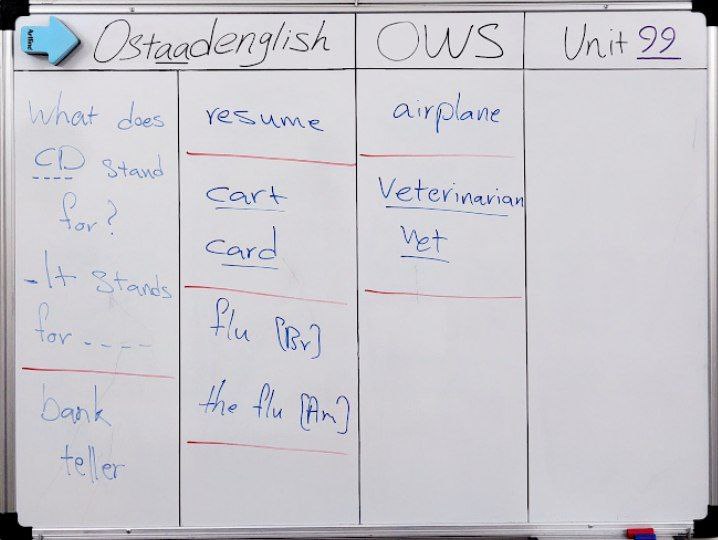 Ostaadenglish
OWS
Unit 99
What does
CD stand
for?
- It stands
for ----
bank
teller
resume
cart
card
flu [Br]
the flu [Am]
airplane
Veterinarian
Vet